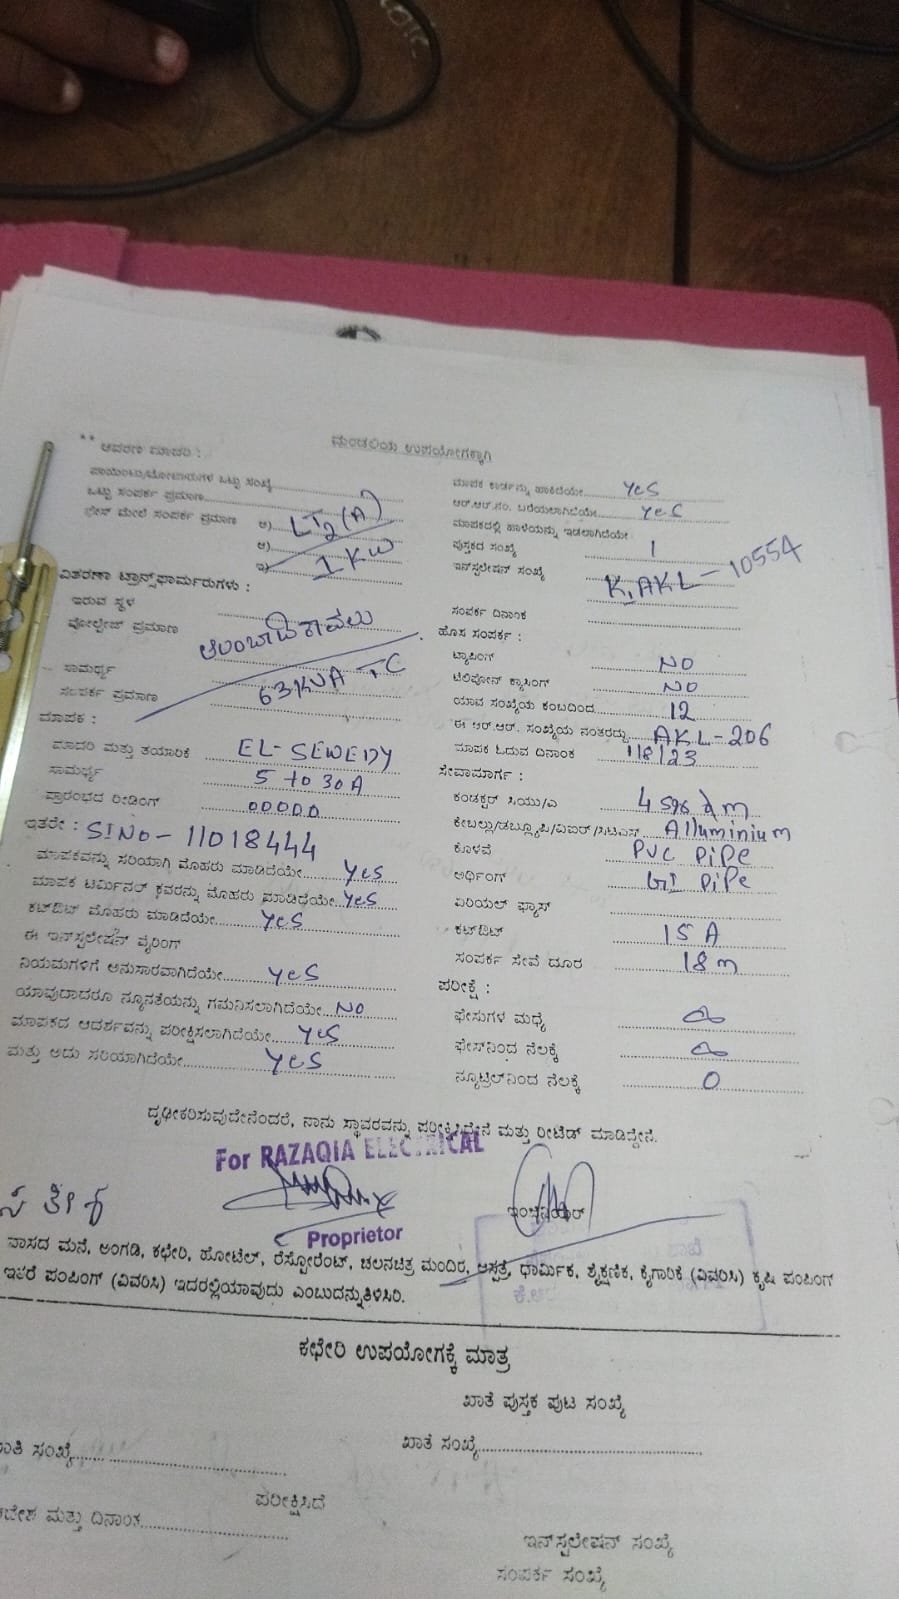 ** ಆವರಣ ಮಾದರಿ :
ಮಂಡಲಿಯ ಉಪಯೋಗಕ್ಕಾಗಿ
ಒಟ್ಟು ಸಂಖ್ಯೆ
ಒಟ್ಟು ಸಂಪರ್ಕ ಪ್ರಮಾಣ
ಫೇಸ್ ಮೇಲೆ ಸಂಪರ್ಕ ಪ್ರಮಾಣ ಅ) LT2(A)
ಆ)
ಇ) 1 KW
ವಿತರಣಾ ಟ್ರಾನ್ಸ್‌ಫಾರ್ಮರುಗಳು :
ಇರುವ ಸ್ಥಳ
ವೋಲ್ಟೇಜ್ ಪ್ರಮಾಣ
ಸಾಮರ್ಥ್ಯ 63KVA TC
ಸಂಪರ್ಕ ಪ್ರಮಾಣ
ಮಾಪಕ :
ಮಾದರಿ ಮತ್ತು ತಯಾರಿಕೆ EL-SEWEDY
ಸಾಮರ್ಥ್ಯ 5 to 30A
ಪ್ರಾರಂಭದ ರೀಡಿಂಗ್ 00000
ಇತರೇ : SlNo-11018444
ಮಾಪಕವನ್ನು ಸರಿಯಾಗಿ ಮೊಹರು ಮಾಡಿದೆಯೇ YeS
ಮಾಪಕ ಟರ್ಮಿನಲ್ ಕವರನ್ನು ಮೊಹರು ಮಾಡಿದೆಯೇ YeS
ಕಟ್‌ಔಟ್ ಮೊಹರು ಮಾಡಿದೆಯೇ YeS
ಈ ಇನ್‌ಸ್ಟಲೇಷನ್ ವೈರಿಂಗ್
ನಿಯಮಗಳಿಗೆ ಅನುಸಾರವಾಗಿದೆಯೇ YeS
ಯಾವುದಾದರೂ ನ್ಯೂನತೆಯನ್ನು ಗಮನಿಸಲಾಗಿದೆಯೇ NO
ಮಾಪಕದ ಆದರ್ಶವನ್ನು ಪರೀಕ್ಷಿಸಲಾಗಿದೆಯೇ YeS
ಮತ್ತು ಅದು ಸರಿಯಾಗಿದೆಯೇ YeS
ಮಾಪಕ ಕಾರ್ಡನ್ನು ಹಾಕಿದೆಯೇ YeS
ಆರ್.ಆರ್.ನಂ. ಬರೆಯಲಾಗಿದೆಯೇ YeS
ಮಾಪಕದಲ್ಲಿ ಹಾಳೆಯನ್ನು ಇಡಲಾಗಿದೆಯೇ
ಪುಸ್ತಕದ ಸಂಖ್ಯೆ 1
ಇನ್‌ಸ್ಟಲೇಷನ್ ಸಂಖ್ಯೆ K.AKL-10554
ಸಂಪರ್ಕ ದಿನಾಂಕ
ಹೊಸ ಸಂಪರ್ಕ :
ಟ್ಯಾಪಿಂಗ್ NO
ಟೆಲಿಫೋನ್ ಕ್ರಾಸಿಂಗ್ NO
ಯಾವ ಸಂಖ್ಯೆಯ ಕಂಬದಿಂದ 12
ಈ ಆರ್.ಆರ್. ಸಂಖ್ಯೆಯ ನಂತರದ್ದು AKL-206
ಮಾಪಕ ಓದುವ ದಿನಾಂಕ 1/8/23
ಸೇವಾಮಾರ್ಗ :
ಕಂಡಕ್ಟರ್ ಸಿಯು/ಎ
ಕೇಬಲ್ಲು/ಡಬ್ಲ್ಯೂಪಿ/ವಿಐಆರ್ Alluminium
ಕೊಳವೆ PVC PiPe
ಅರ್ಥಿಂಗ್ GI PiPe
ಏರಿಯಲ್ ಫ್ಯೂಸ್
ಕಟ್‌ಔಟ್ 15 A
ಸಂಪರ್ಕ ಸೇವೆ ದೂರ 18 m
ಪರೀಕ್ಷೆ :
ಫೇಸುಗಳ ಮಧ್ಯೆ ∞
ಫೇಸ್‌ನಿಂದ ನೆಲಕ್ಕೆ ∞
ನ್ಯೂಟ್ರಲ್‌ನಿಂದ ನೆಲಕ್ಕೆ 0
ದೃಢೀಕರಿಸುವುದೇನೆಂದರೆ, ನಾನು ಸ್ಥಾವರವನ್ನು ಪರೀಕ್ಷಿಸಿದ್ದೇನೆ ಮತ್ತು ರೀಟೆಡ್ ಮಾಡಿದ್ದೇನೆ.
For RAZAQIA ELECTRICAL
ಇಂಜಿನಿಯರ್
Proprietor
ವಾಸದ ಮನೆ, ಅಂಗಡಿ, ಕಛೇರಿ, ಹೋಟೆಲ್, ರೆಸ್ಟೋರೆಂಟ್, ಚಲನಚಿತ್ರ ಮಂದಿರ, ಆಸ್ಪತ್ರೆ, ಧಾರ್ಮಿಕ, ಶೈಕ್ಷಣಿಕ, ಕೈಗಾರಿಕೆ (ವಿವರಿಸಿ) ಕೃಷಿ ಪಂಪಿಂಗ್
ಇತರೆ ಪಂಪಿಂಗ್ (ವಿವರಿಸಿ) ಇದರಲ್ಲಿಯಾವುದು ಎಂಬುದನ್ನುತಿಳಿಸಿರಿ.
ಕಛೇರಿ ಉಪಯೋಗಕ್ಕೆ ಮಾತ್ರ
ಖಾತೆ ಪುಸ್ತಕ ಪುಟ ಸಂಖ್ಯೆ
ಸಂಖ್ಯೆ
ಖಾತೆ ಸಂಖ್ಯೆ
ಪರೀಕ್ಷಿಸಿದೆ
ಮತ್ತು ದಿನಾಂಕ
ಇನ್‌ಸ್ಟಲೇಷನ್ ಸಂಖ್ಯೆ
ಸಂಪರ್ಕ ಸಂಖ್ಯೆ